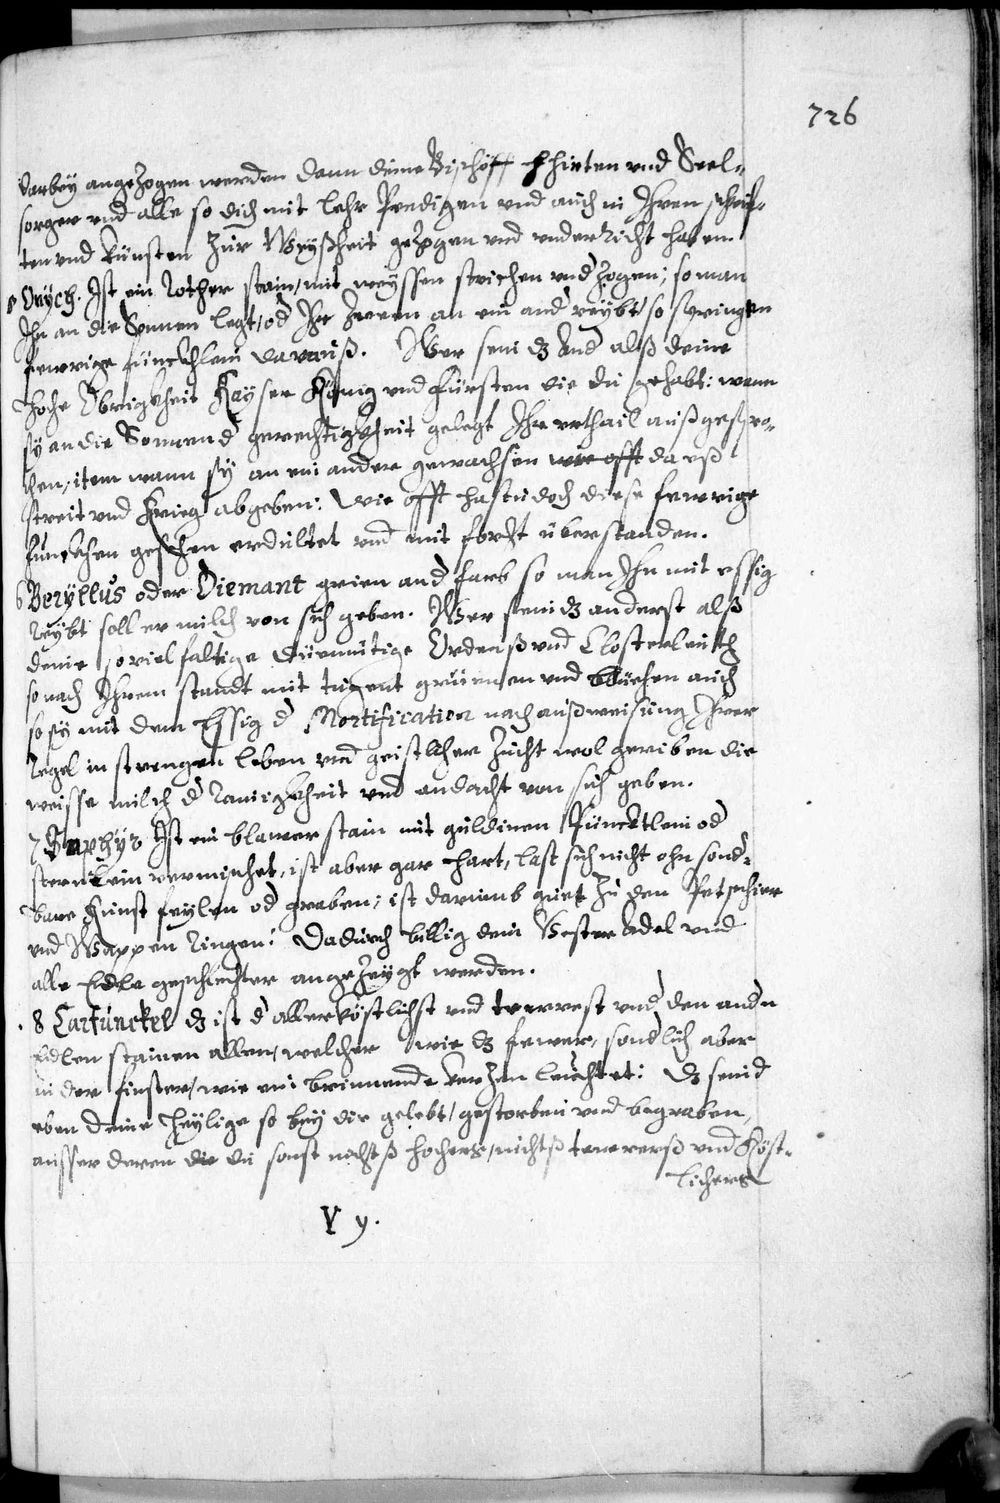 726
darbey angezogen werden dann deine Bischöff hhirten vnd Seel-
sorger vnd alle so dich mit lehr Predigen vnd auch in Ihren schrif-
ten vnd künsten zur Weyßheit gezogen vnd vnderricht haben.
Onych. Ist ein Rother stain, mit weyssen strichen vnd zogen; so man
Ihn an die Sonnen legt, od Ihr zween an ein and reybt, so springen
fewrige fünckhlein darauß. Wer seind dz and alß deine
hohe Obrigkheit Kayser König vnd Fürsten die du gehabt: wann
sy an die Sonnen d gerechtigkheit gelegt Ihr vrthail außgespro-
chen, item wann sy an ein ander gewachsen wie offt daruß
streit vnd Krieg abgeben: wie offt hastu doch diese fewrige
fünckhen gesehen erdultet vnd mit forcht überstanden.
6 Beryllus oder Diemant grien and farb so man Ihn mit essig
reybt soll er milch von sich geben. Wer seind dz anderst alß
deine so vielfaltige diemütige Ordenß vnd Closterleuth
so nach Ihrem standt mit tugent grüenen vnd blüehen auch
so sy mit dem Essig d Mortification nach außweisung Ihrer
Regel in strengen leben vnd geistlicher zucht wol geriben die
weisse milch d Rainigkheit vnd andacht von sich geben.
7 Saphyr Ist ein blawer stain mit guldinen Füncktlein od
sternlein vermischet, ist aber gar hart, last sich nicht ohn sond-
bare Kunst feylen od graben; ist darumb guet zu den Petschier
vnd Wappen Ringen: Dadurch billig dein Vester Adel vnd
alle Edle geschlechter angezeygt werden.
8 Carfunckel dz ist d allerköstlichst vnd tewrest vnd den andn
Edlen stainen allen, welcher wie dz fewer, sondlich aber
in der finster, wie ein brinnende kerzen leuchtet: dz seind
eben deine Heylige so bey dir gelebt, gestorben vnd begraben,
ausser deren die du sonst nichtß hochers, nichtß tewrerß vnd köst-
lichers
V y.